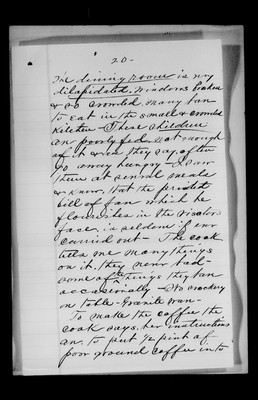 20-
The dining room is very
dilapidated, windows broken
& so crowded, many have
to eat in the small & crowded
kitchen - These children
are poorly fed, not enough
of it & we they say, often
go away hungry - I saw
them at several meals
& know. That the periodic
bill of fare which he
flourishes in the visitors
face, is seldom if ever
carried out - The cook
tells me many things
on it, they never had -
some of the things they have
occasionally - No crockery
on table - Granite ware -
To make the coffee the
cook says, her instructions
are, to put 1/2 pint of
poor ground coffee into